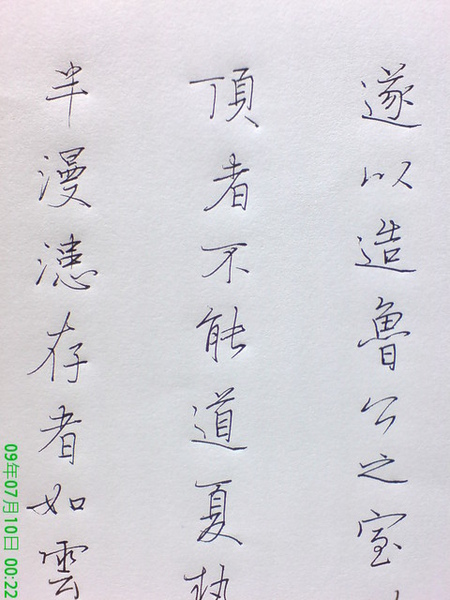 遂以造魯公之室
頂者不能道夏
半漫漶存者如雲
09年07月10日 00:22